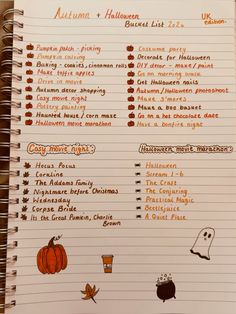 Autumn + Halloween
Bucket List 2024
UK edition.
Pumpkin patch - picking
Pumpkin carving
Baking - cookies, cinnamon rolls
Make toffee apples
Drive in movie
Autumn decor shopping
Cosy movie night
Pottery painting
Haunted house / corn maze
Halloween movie marathon
Costume party
Decorate for Halloween
DIY decor - make / paint
Go on morning walk
Get Halloween nails
Autumn / Halloween photoshoot
Make s'mores
Make a boo basket
Go on a hot chocolate date
Have a bonfire night
Cosy movie night:
Hocus Pocus
Coraline
The Addams Family
Nightmare before Christmas
Wednesday
Corpse Bride
Its the Great Pumpkin, Charlie
Brown
Halloween movie marathon:
Halloween
Scream 1-6
The Craft
The Conjuring
Practical Magic
Beetlejuice
A Quiet Place